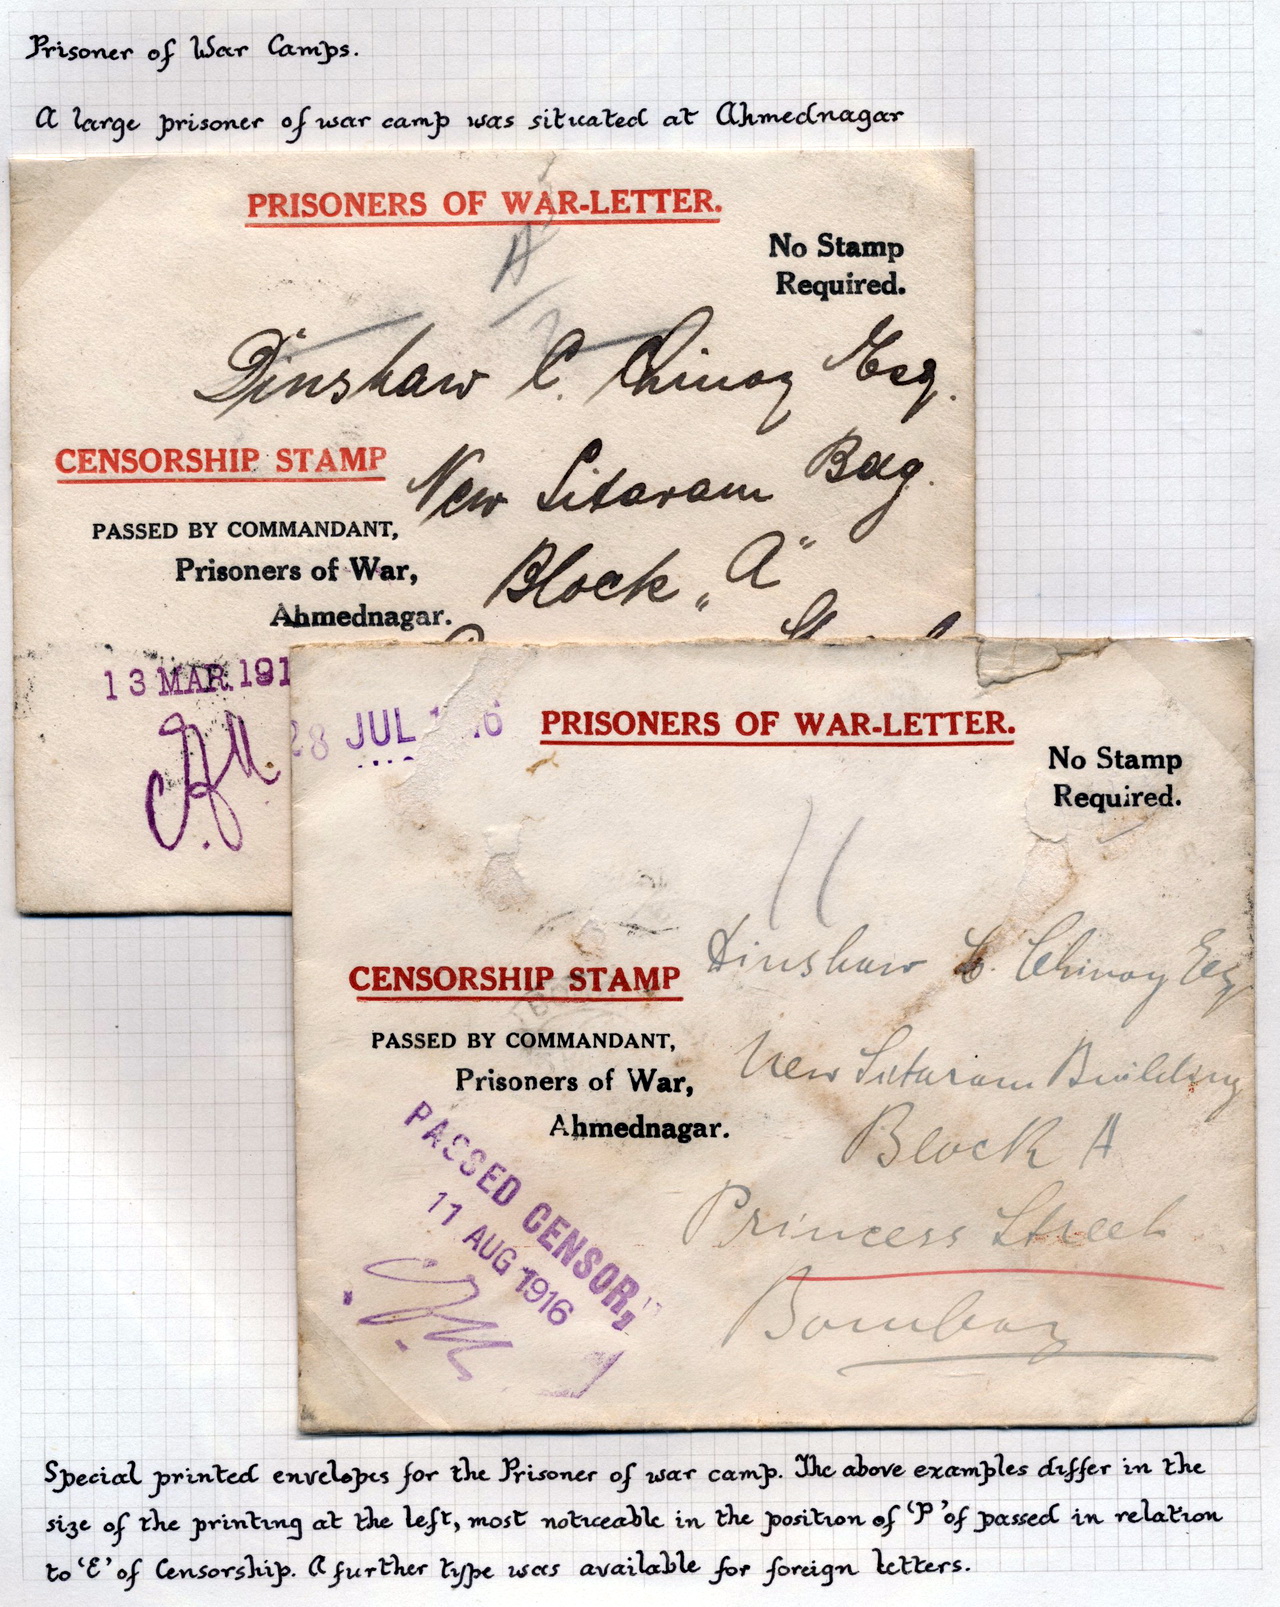 Prisoner of War Camps.
A large prisoner of war camp was situated at Ahmednagar
PRISONERS OF WAR-LETTER.
A
No Stamp
Required.
Dinshaw C. Chinoy Esq.
CENSORSHIP STAMP
New Sitaram Bag.
PASSED BY COMMANDANT,
Block „A"
Prisoners of War,
Ahmednagar.
13 MAR. 191
28 JUL 16
PRISONERS OF WAR-LETTER.
No Stamp
Required.
Dinshaw C. Chinoy Esq
CENSORSHIP STAMP
PASSED BY COMMANDANT,
New Sitaram Building
Prisoners of War,
Block A
Ahmednagar.
PASSED CENSOR,
11 AUG 1916
Princess Street
Bombay
Special printed envelopes for the Prisoner of war camp. The above examples differ in the
size of the printing at the left, most noticeable in the position of 'P' of passed in relation
to 'E' of Censorship. A further type was available for foreign letters.